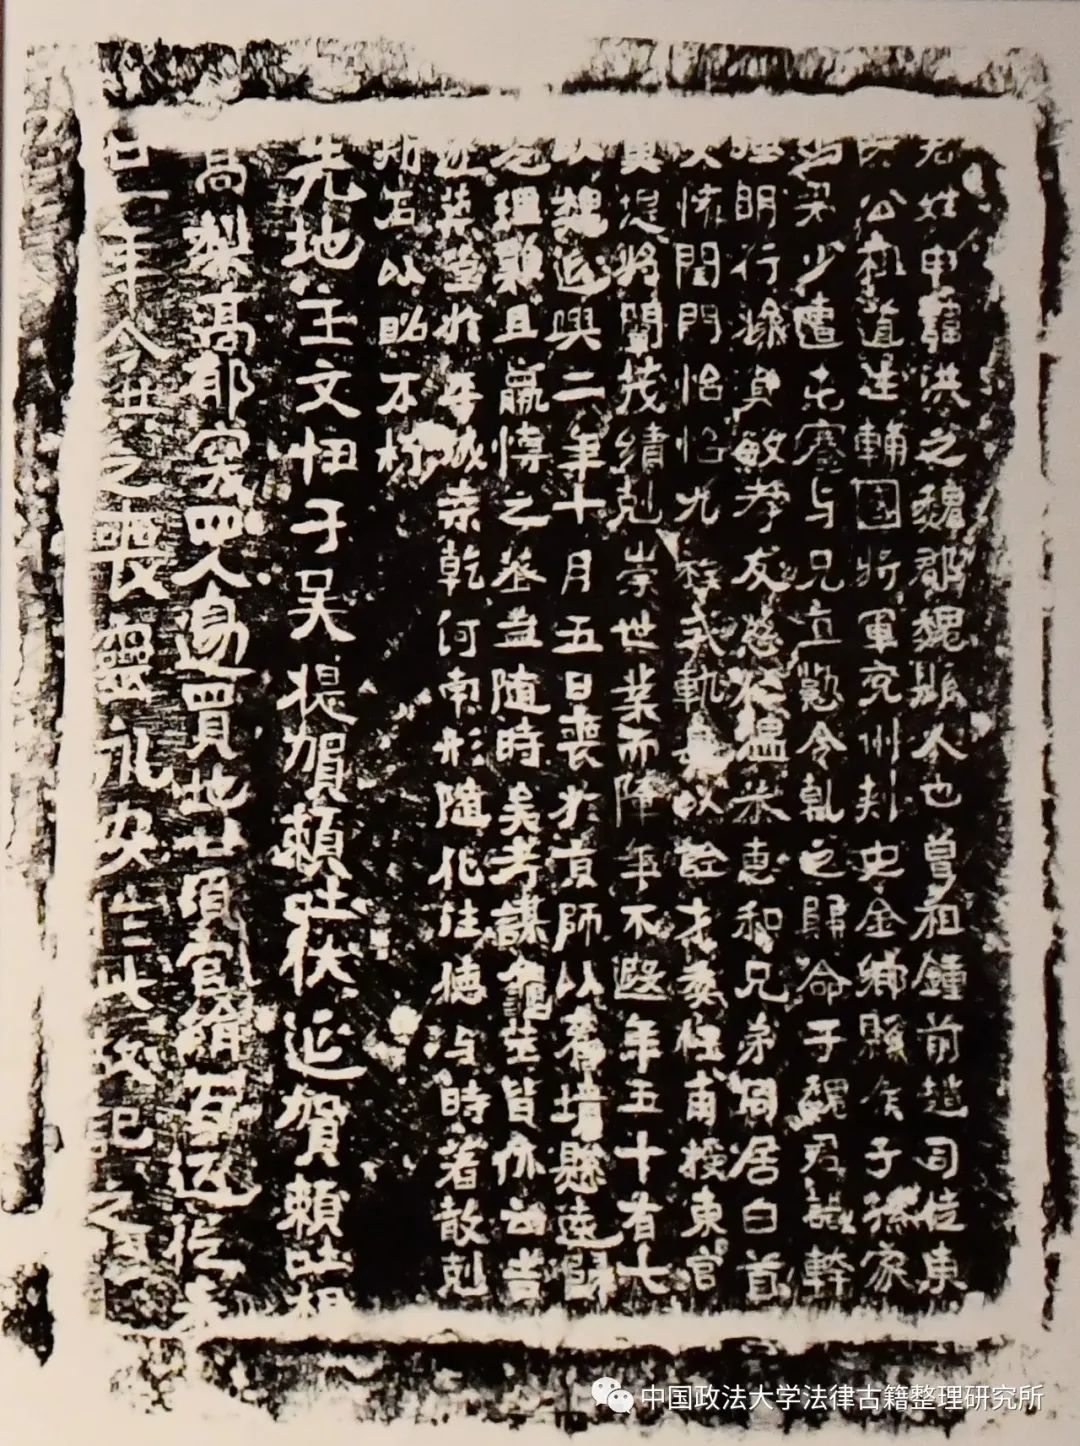 君姓申諱洪之魏郡魏縣人也曾祖鍾前趙司徒東
陽公祖道生輔國將軍兖州刾史金鄉縣侯子孫家
焉君少遭屯蹇与兄直懃令乹之歸命于魏君識幹
強明行操貞敏孝友慈仁溫恭惠和兄弟同居白首
交懽閨門怡怡九族式軌是以詮才委任甫授東宫
莫堤將闡茂績剋崇世業而降年不遐年五十有七
以魏延興二年十月五日喪於京師以舊墳懸遠歸
窆理難且嬴博之葬盖隨時矣考謀龜筮皆休云吉
遂築塋於平城桑乾河南形隨化往德与時著敢剋
斯石以昭不朽
先地主文忸于吴提賀賴吐伏延賀賴吐根
高梨高郁突四人邊買地廿頃官絹百匹從来
廿一年今洪之喪靈永安於此故記之
中国政法大学法律古籍整理研究所